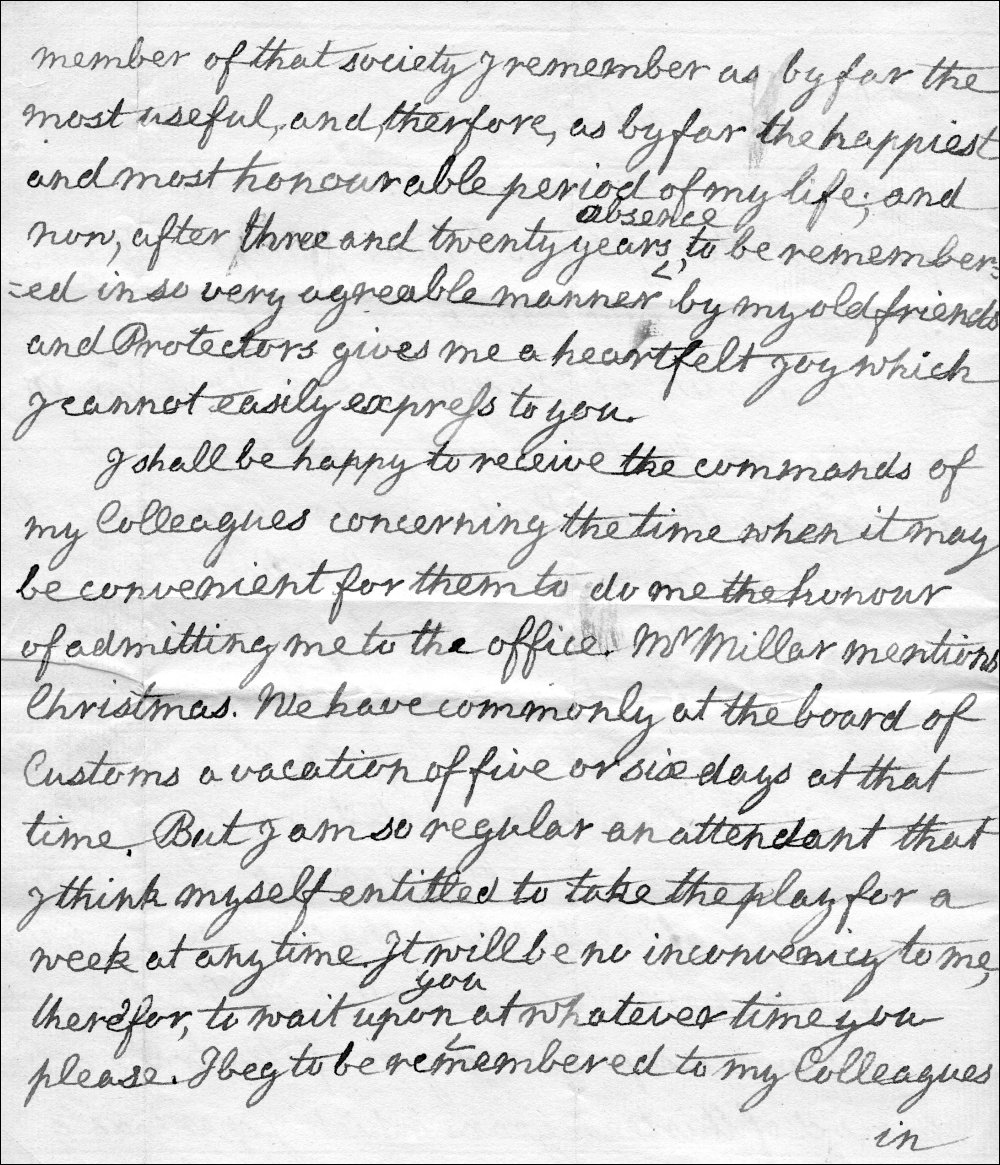 member of that society I remember as by far the
most useful, and, therfore, as by far the happiest
and most honourable period of my life; and
now, after three and twenty years absence, to be remember=
=ed in so very agreable manner by my old friends
and Protectors gives me a heartfelt joy which
I cannot easily expreſs to you.
I shall be happy to receive the commands of
my Colleagues concerning the time when it may
be convenient for them to do me the honour
of admitting me to the office. Mr Millar mentions
Christmas. We have commonly at the board of
Customs a vacation of five or six days at that
time. But I am so regular an attendant that
I think myself entitled to take the play for a
week at any time. It will be no inconveniency to me,
therefor, to wait upon you at whatever time you
please. I beg to be remembered to my Colleagues
in